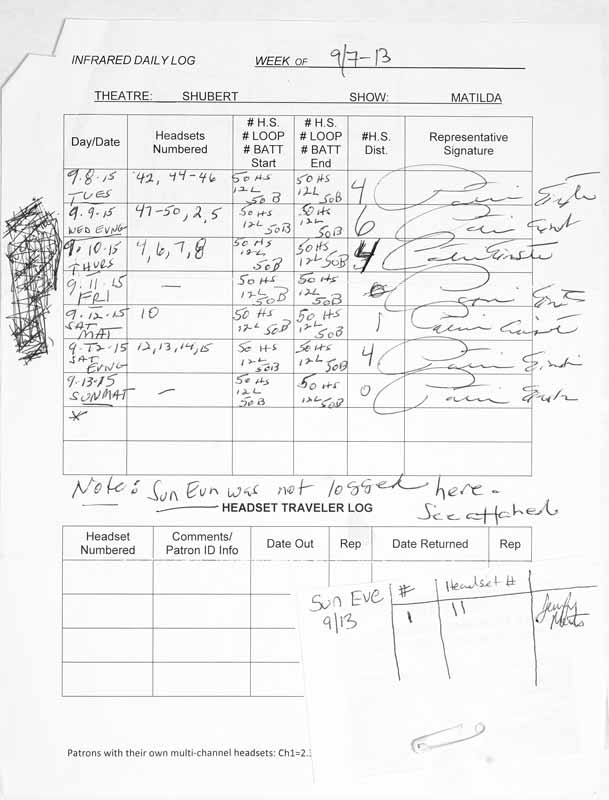 INFRARED DAILY LOG WEEK OF 9/7-13
THEATRE: SHUBERT SHOW: MATILDA
Day/Date Headsets Numbered # H.S. # LOOP # BATT Start # H.S. # LOOP # BATT End #H.S. Dist. Representative Signature
9.8.15 TUES 42, 44-46 50 HS 12L 50B 50 HS 12L 50B 4
9.9.15 WED EVNG 47-50, 2, 5 50 HS 12L 50B 50 HS 12L 50B 6
9.10.15 THURS 4, 6, 7, 8 50 HS 12L 50B 50 HS 12L 50B 4
9.11.15 FRI — 50 HS 12L 50B 50 HS 12L 50B
9.12.15 SAT MAT 10 50 HS 12L 50B 50 HS 12L 50B 1
9.12.15 SAT EVNG 12, 13, 14, 15 50 HS 12L 50B 50 HS 12L 50B 4
9.13.15 SUN MAT — 50 HS 12L 50B 50 HS 12L 50B 0
*
Note: Sun Evn was not logged here.
See attached
HEADSET TRAVELER LOG
Headset Numbered Comments/ Patron ID Info Date Out Rep Date Returned Rep
Sun Eve 9/13 # Headset #
1 11
Patrons with their own multi-channel headsets: Ch1=2.3